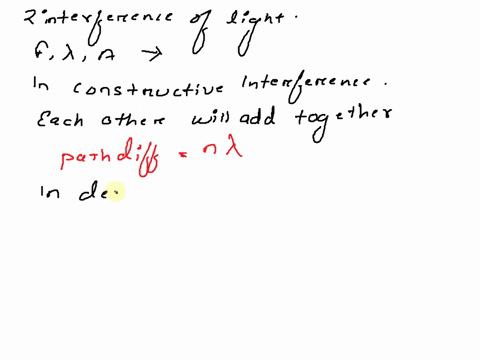 Interference of light.
f, λ, A →
In constructive Interference.
Each others will add together
path diff = nλ
In de